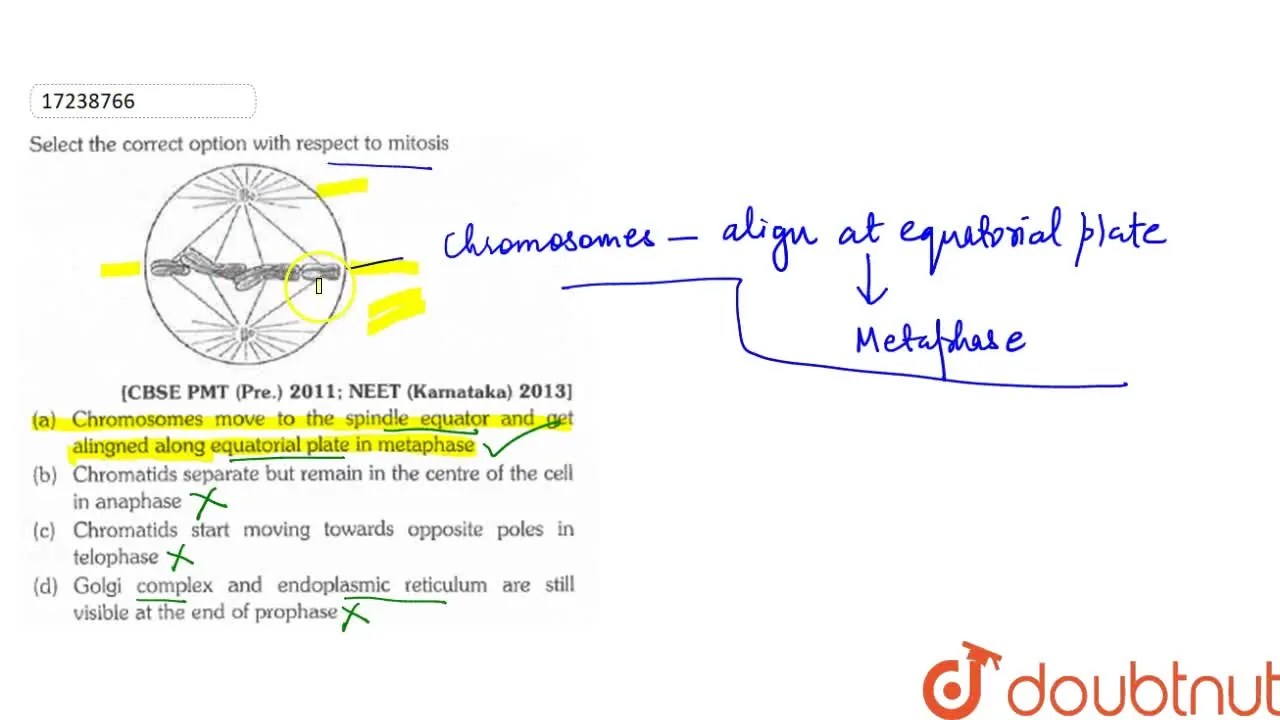 17238766
Select the correct option with respect to mitosis
Chromosomes – align at equatorial plate
Metaphase
[CBSE PMT (Pre.) 2011; NEET (Karnataka) 2013]
(a) Chromosomes move to the spindle equator and get
alingned along equatorial plate in metaphase
(b) Chromatids separate but remain in the centre of the cell
in anaphase
(c) Chromatids start moving towards opposite poles in
telophase
(d) Golgi complex and endoplasmic reticulum are still
visible at the end of prophase
doubtnut